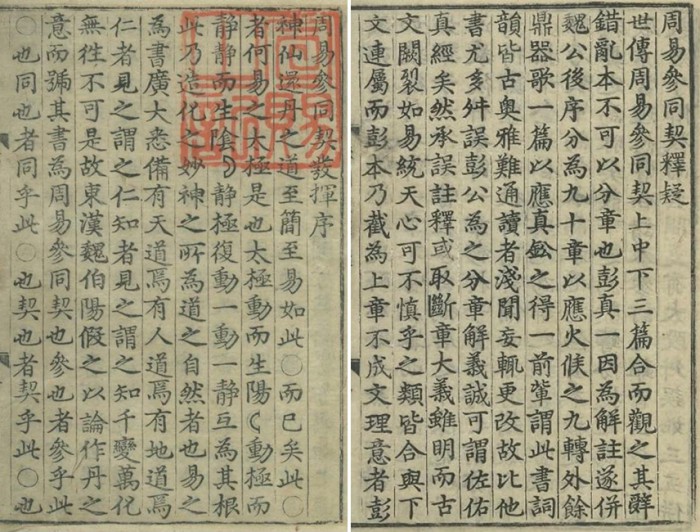 周易參同契釋疑
世傳周易參同契上中下三篇合而觀之其辭
錯亂本不可以分章也彭真一因為解註遂併
魏公後序分為九十章以應火候之九轉外餘
鼎器歌一篇以應真鈆之得一前輩謂此書詞
韻皆古奥雅難通讀者淺聞妄輒更改故比他
書尤多舛誤彭公為之分章解義誠可謂佐佑
真經矣然承誤註釋或取斷章大義雖明而古
文闕裂如易統天心可不慎乎之類皆合與下
文連屬而彭本乃截為上章不成文理意者彭
周易參同契發揮序
神仙還丹之道至簡至易如此〇而已矣此〇
者何易之太極是也太極動而生陽☾動極而
靜靜而生陰☽靜極復動一動一靜互為其根
此乃造化之妙神之所為道之自然者也易之
為書廣大悉備有天道焉有人道焉有地道焉
仁者見之謂之仁知者見之謂之知千變萬化
無徃不可是故東漢魏伯陽假之以論作丹之
意而號其書為周易參同契也參也者參乎此
〇也同也者同乎此〇也契也者契乎此〇也